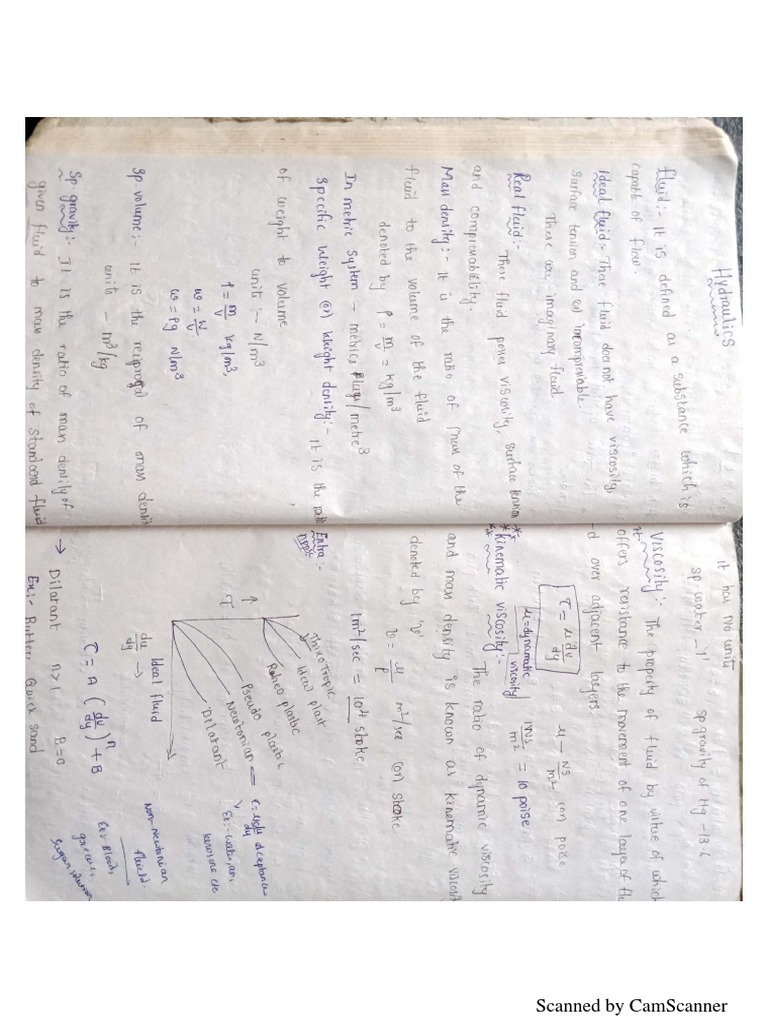 Hydraulics
fluid:- It is defined as a substance which is
capable of flow
Ideal fluid:- Thar fluid doe not have viscosity,
surface tension and is incomprevable.
There are imaginary fluid
Real fluid:- Thar fluid power viscosity, surface tension
and comprevability.
Mass density:- It is the ratio of mass of the
fluid to the volume of the fluid
denoted by ρ = m/v = kg/m³
In metric system - metric /metre³
specific weight (or) weight density:- It is the ratio
of weight to volume
units:- N/m³
ρ = m/v kg/m³,
ω = W/V
ω = ρg N/m³
Sp volume:- It is the reciprocal of mass densit
units - m³/kg
Sp gravity:- It is the ratio of mass density of
given fluid to mass density of standard fluid
it has No units
sp water - '1' sp gravity of Hg - 13.6
viscosity:- The property of fluid by virtue of which
offers resistance to the movement of one layer of flu
-d over adjacent layers
τ = μ dv/dy μ - NS/m² (or) poise
μ = dynamatic viscosity 1NS/m² = 10 poise
* Kinematic viscosity:- The ratio of dynamic viscosity
and mass density is known as kinematic viscosi
denoted by 'υ' υ = μ/ρ m²/sec (or) stroke
1m²/sec = 10⁴ stroke
Extra:-
Thixotropic
Ideal plast
Rheo plastic
Pseudo plastic
Newtonian
Dilatant
τ ↑
du/dy →
Ideal fluid
Ex:- water, air, kerosene etc
Non-newtonian
fluid.
Ex:- Blood,
τ = A (du/dy)ⁿ + B
→ Dilatant n>1 B=0
Ex:- Butter, Quick sand